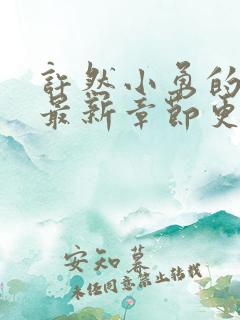 许然小勇的
最新章节更
安知暮
未经同意禁止转载